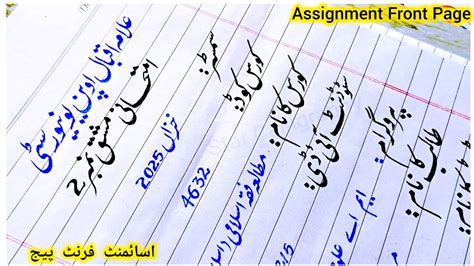 Assignment Front Page
علامہ اقبال اوپن یونیورسٹی
امتحانی مشق نمبر 2
سمسٹر: خزاں 2025
کورس کوڈ: 4632
کورس کا نام: مطالعہ فقہ اسلامی
سٹوڈنٹ آئی ڈی:
پروگرام: ایم اے
طالب کا نام:
اسائمنٹ فرنٹ پیج